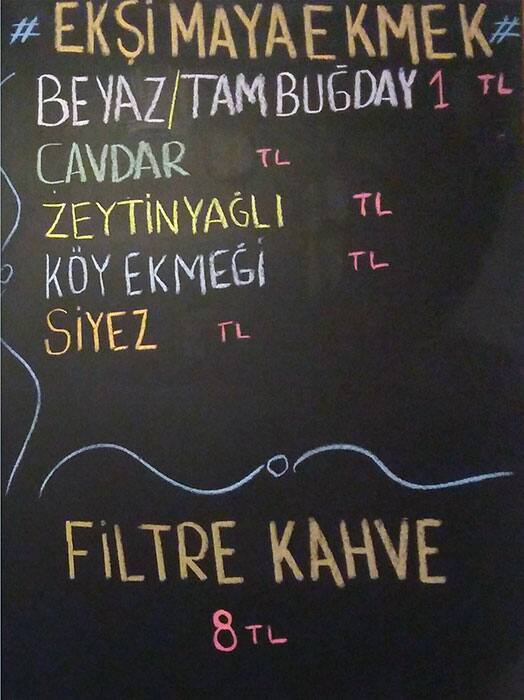 # EKŞİ MAYA EKMEK #
BEYAZ/TAM BUĞDAY 1 TL
ÇAVDAR TL
ZEYTİNYAĞLI TL
KÖY EKMEĞİ TL
SİYEZ TL
FİLTRE KAHVE
8 TL